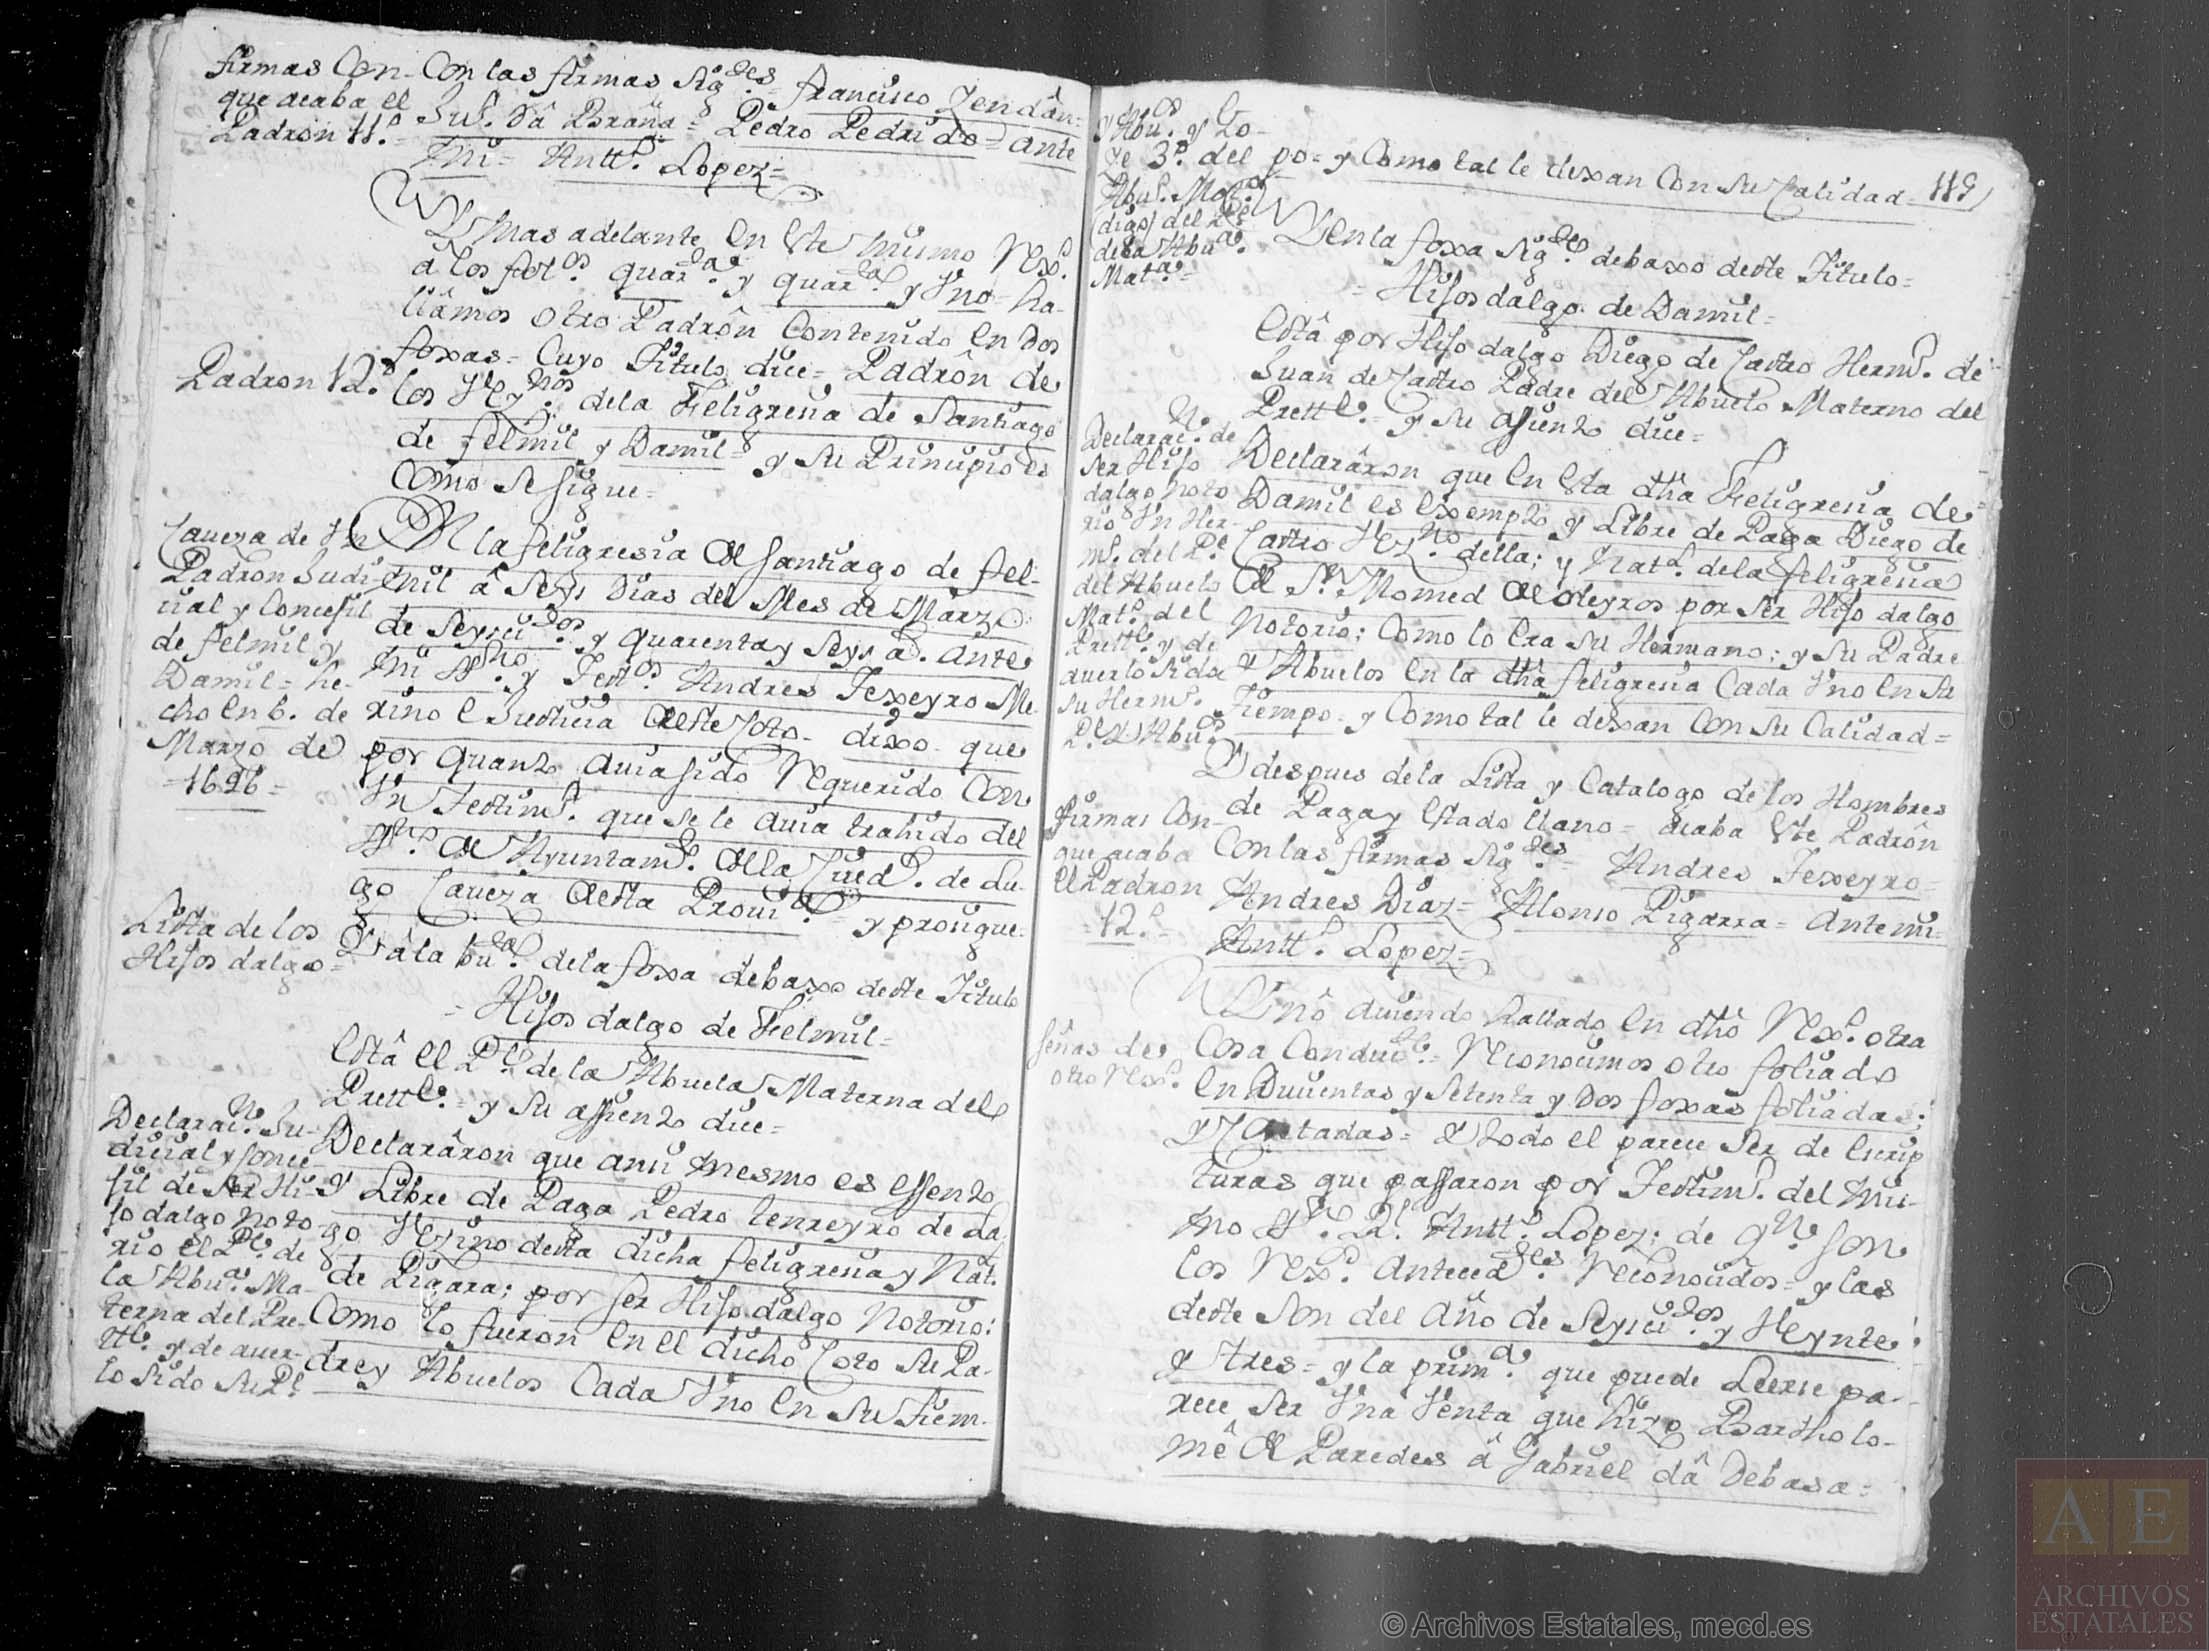 firmas Con-
que acaba el
Padron 11.º
Con las firmas sig.des = francisco Zendân=
Juº. Dâ Braña = Pedro Pedrido = ante
mi = Antt.º Lopez=
Y mas adelante en este mismo Rex.º
â los fol.os quar.ta y quar.ta y Vno = ha-
llâmos otro Padrôn Contenido en dos
foxas = Cuyo Titulo dice = Padrôn de
Padron 12.º
los Vez.nos dela Feligresia de Santiago
de felmil y Damil = y su Principio es
Como se sigue =
Caueza de Vn
Padron Judi-
cial y Concejil
de felmil y
Damil = he-
cho en 6. de
Marzo de
=1646=
En la feligresia de Santiago de fel-
mil â Seys dias del Mes de Marzo
de Seysci.dos y quarenta y seys a.s ante
mi SS.no y Test.os Andres Texeyro Me-
rino e Justicia deste Coto = dixo que
por quanto auia sido Requerido Con
Vn Testim.º que se le auia trahido del
SS.no de Ayuntam.º de la Ciud.d de Lu-
go Caueza desta Prouí.a = y prosigue=
Lista de los
Hijos dalgo=
Y â la bu.ta dela foxa debaxo deste Titulo
= Hijos dalgo de Felmil=
Està el P.e de la Abuela Materna del
Prett.e = y su assiento dice=
Declarac.n Ju-
dicial y Conce-
jil de ser Hi-
jo dalgo noto-
rio el P.e de
la Abu.a Ma-
terna del Pre-
tt.e y de auer-
lo sido su P.e
Declarâron que ansi mesmo es essento
y Libre de Paga Pedro tenreyro de La-
go Vezino desta dicha feligresia y Nat.l
de Pigara; por ser Hijo dalgo Notorio:
Como lo fueron en el dicho Coto su Pa-
dre y Abuelos Cada Vno en su tiem-
119
y Abu.º y Lo-
de 3.º del
Abu.º Mat.º
(digo) del P.e
dela Abu.a
Mat.a=
po = y Como tal le dexan Con su Calidad=
Y en la foxa sig.te debaxo deste Titulo=
= Hijos dalgo de Damil=
Està por Hijo dalgo Diego de Castro Herm.º de
Juan de Castro Padre del Abuelo Materno del
Prett.e = y su Assiento dice=
Declarac.n de
ser Hijo
dalgo noto
rio Vn Her-
m.º del P.e
del Abuelo
Mat.º del
Prett.e y de
auerlo sido
su Herm.º
P.e y Abu.os
Declarâron que en esta dhâ Feligresia de
Damil es exempto y Libre de Paga Diego de
Castro Vez.no della; y Nat.l dela feligresia
de S.n Momed de oleyros por ser Hijo dalgo
notorio: Como lo era su Hermano; y su Padre
y Abuelos en la dhâ feligresia Cada Vno en su
Tiempo = y Como tal le dexan Con su Calidad=
Y despues dela Lista y Catalogo de los Hombres
de Paga y Estado llano = acaba este Padrôn
Firmas Con
que acaba
el Padron
=12.º=
Con las firmas sig.des = Andres Texeyro=
Andres Diaz = Alonso Pigarra = Ante mi=
Antt.º Lopez=
Y nô auiendo hallado en dhô Rex.º otra
señas de
otro Rex.º
Cosa Conduc.te = Reconocimos otro foliado
en Ducientas y Setenta y Dos foxas foliadas;
y Cortadas = Y todo el parece ser de Escrip
turas que passaron por Testim.º del mis-
mo SS.no R.l Antt.º Lopez; de q.n son
los Rex.os Anteced.tes Reconocidos = y las
deste son del Año de Seysci.dos y Veynte
y tres = y la prim.a que puede Leerse pa-
rece ser Vna Venta que hizo Bartholo-
mê de Paredes â Gabriel dâ Debasa=
© Archivos Estatales, mecd.es
AE
ARCHIVOS
ESTATALES